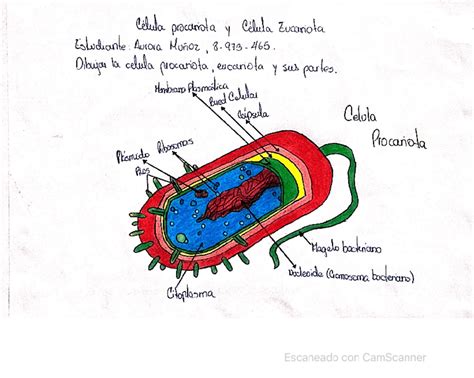 Célula procariota y Célula Eucariota
Estudiante: Aurora Muñoz, 8-973-465.
Dibujar la celula procariota, eucariota y sus partes.
Membrana Plasmática
Pared Celular
Cápsula
Celula
Procariota
Ribosomas
Plásmido
Pilis
Flagelo bacteriano
Nucleoide (Cromosoma bacteriano)
Citoplasma
Escaneado con CamScanner